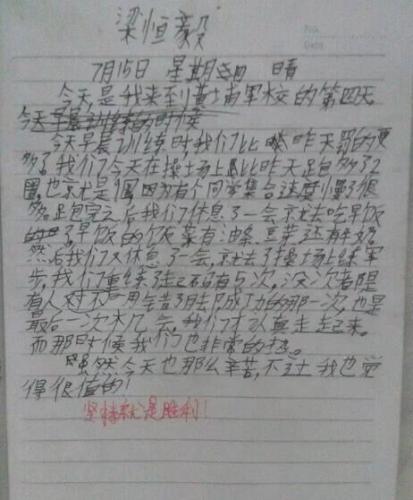 梁恒毅
No.
Date
7月15日 星期四 晴
今天,是我来到黄埔军校的第四天
今天早晨训练的时候
今天早晨训练时我们比昨天跑的更
多了,我们今天在操场上比昨天跑多了2
圈,也就是 圈因为有个同学集合速度慢了很
多。跑完之后我们休息了一会就去吃早饭
了早饭的饭菜有油条、豆芽还有牛奶
然后我们又休息了一会,就去了操场上练军
步,我们重练了 有5次,没次都
有人 错了 成功的那一次,也是
最后一次机会,我们才认真走起来。
而那时候我们也非常的热。
虽然今天也那么辛苦,不过我也觉
得很值的!
坚持就是胜利!